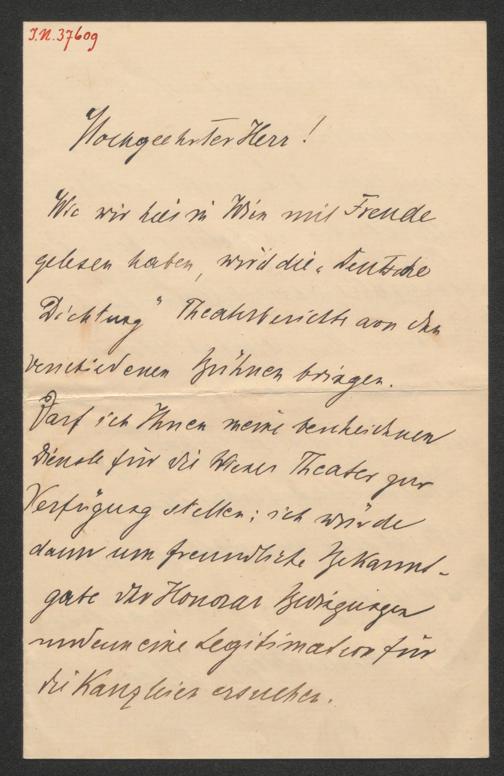 J.N. 37609
Hochgeehrter Herr!
Wie wir hier in Wien mit Freude
gelesen haben, wird die „Deutsche
Dichtung" Theaterberichte von den
verschiedenen Bühnen bringen.
Darf ich Ihnen meine bescheidenen
Dienste für die Wiener Theater zur
Verfügung stellen; ich würde
dann um freundliche Bekannt-
gabe der Honorar Bedingungen
und um eine Legitimation für
die Kanzleien ersuchen.